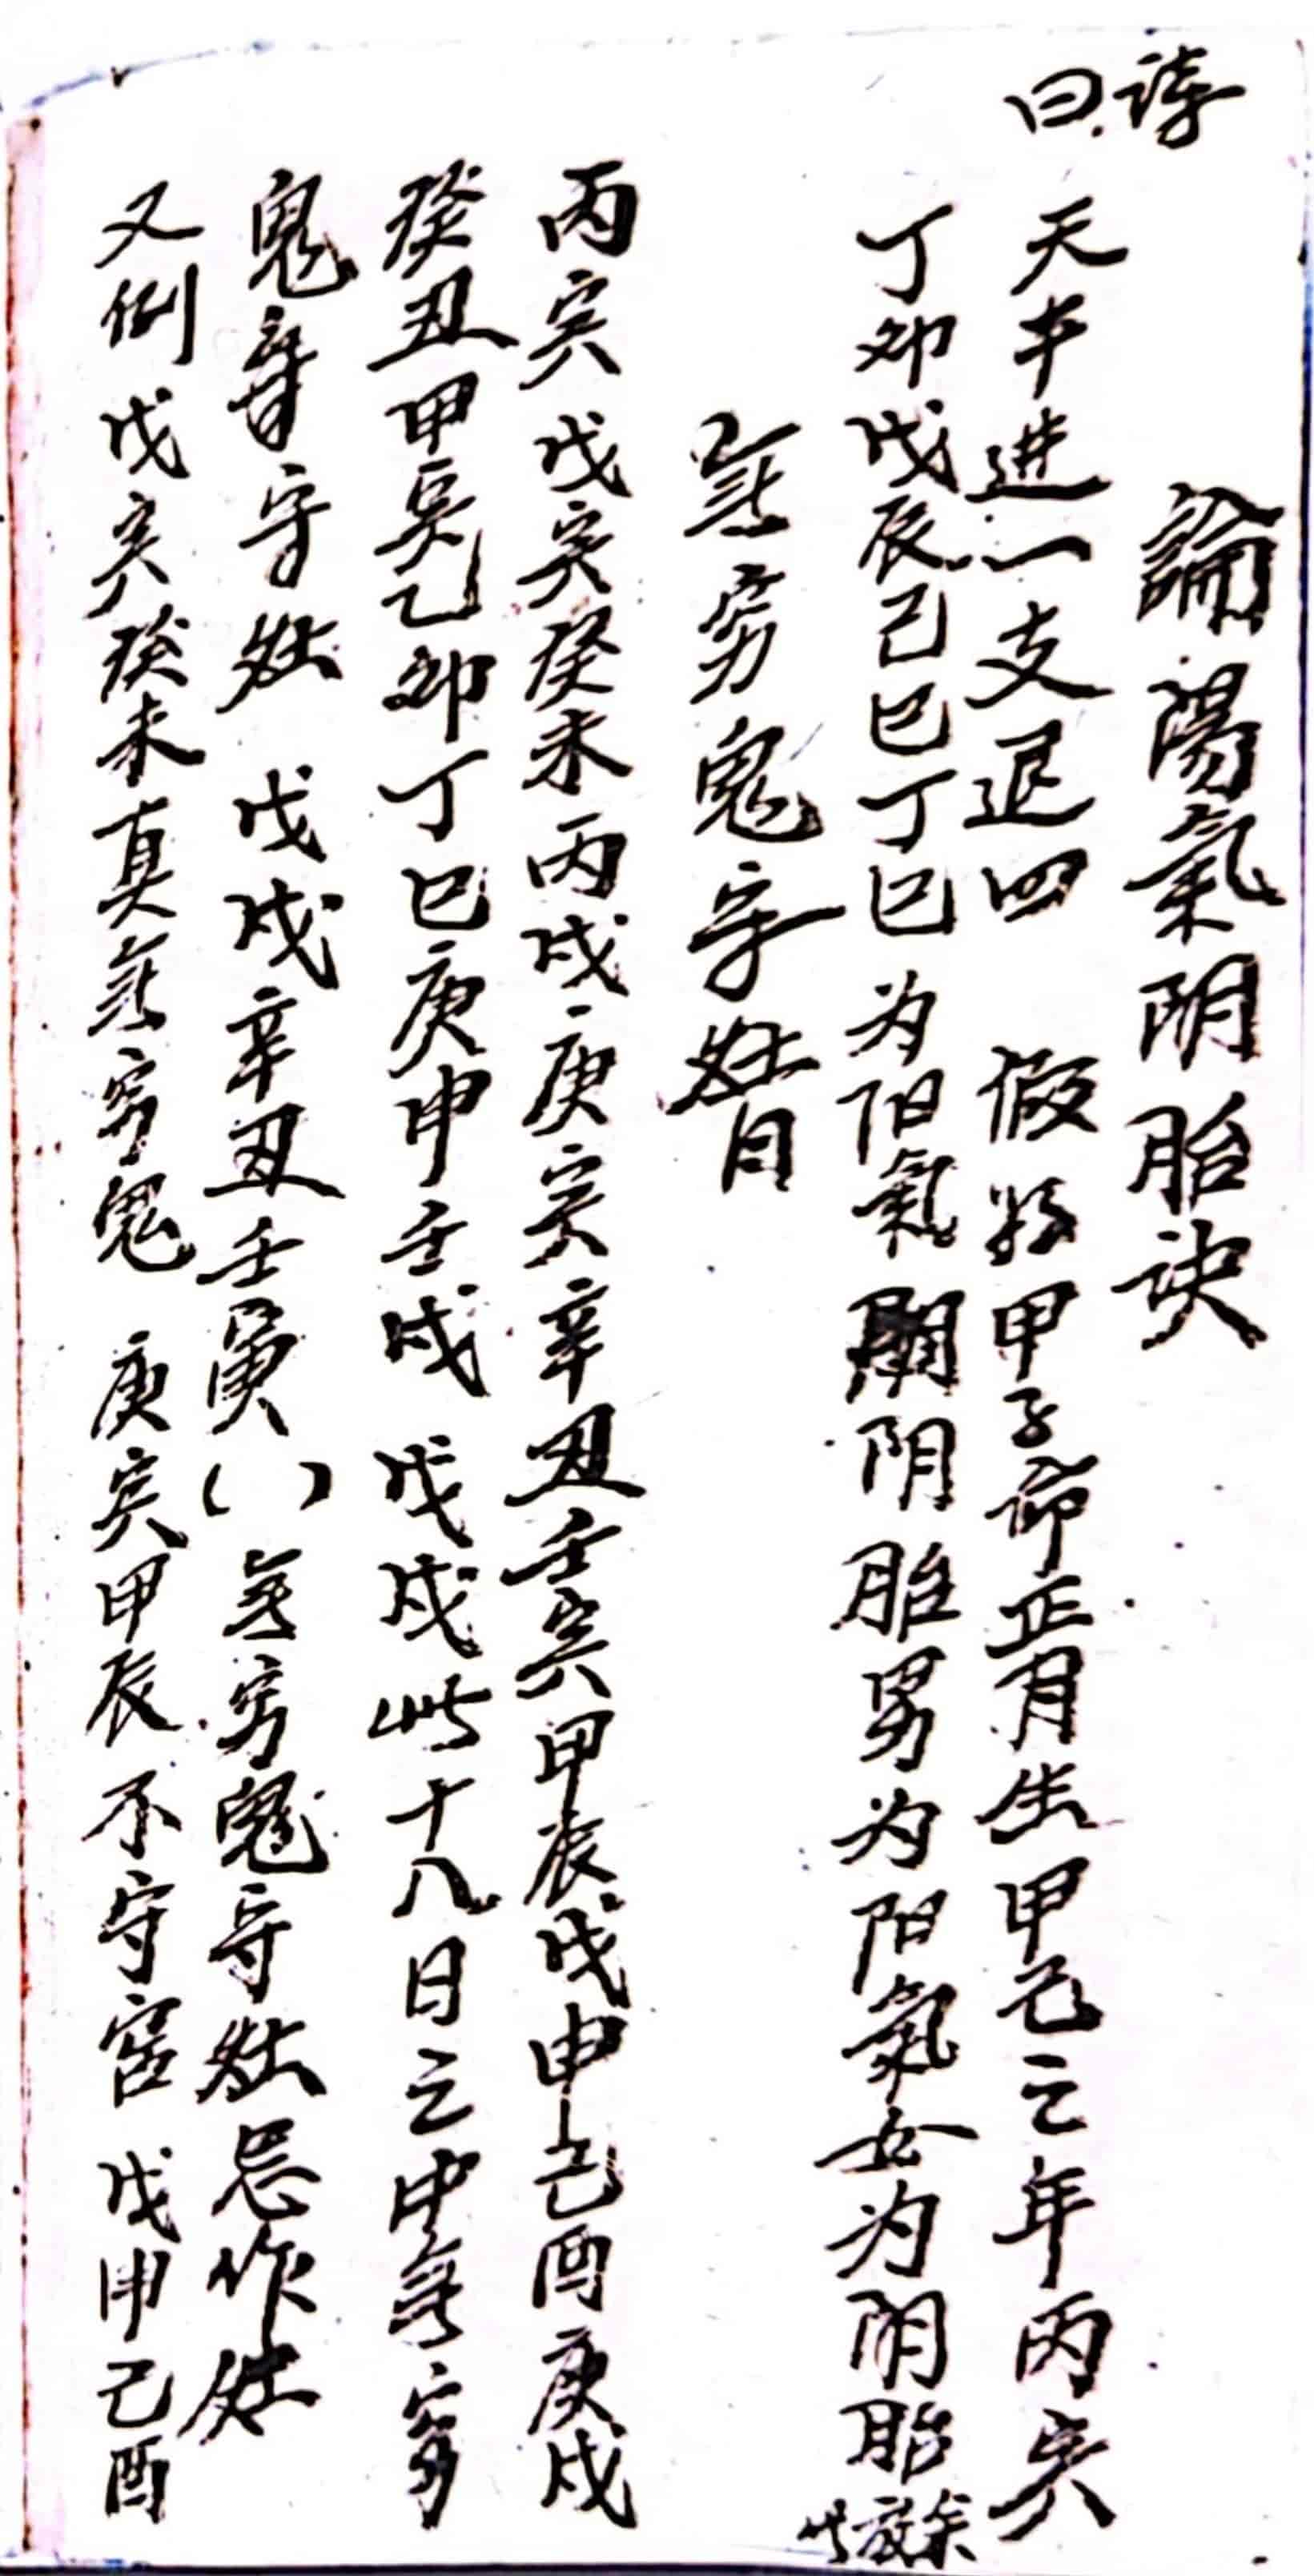 論陽氣阴胎诀
诗曰 天干进一支退四 假如甲子命正月生甲己之年丙寅
丁卯戊辰己巳丁巳为阳氣 阴胎男为阳氣女为阴胎 余放此
無穷鬼守灶日
丙寅戊寅癸未丙戌庚寅辛丑壬寅甲辰戊申己酉庚戌
癸丑甲寅乙卯丁巳庚申壬戌 戊戌此十八日之中無穷
鬼守灶 戊戌辛丑壬寅( )無穷鬼守灶忌作灶
又例戊寅癸未真無穷鬼 庚寅甲辰不守宫 戊申己酉